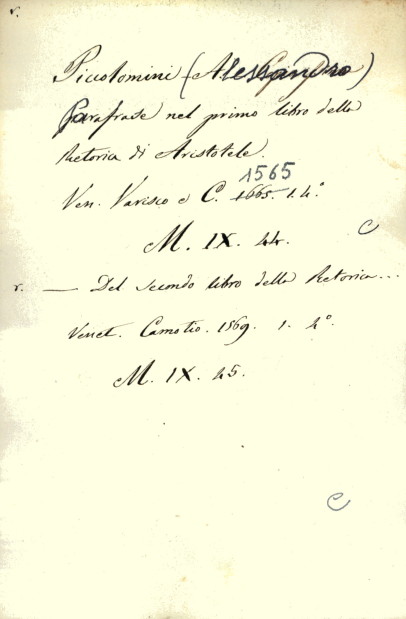 r.
Piccolomini (Alessandro)
Parafrase nel primo libro della
Retorica di Aristotele.
1565
Ven. Varisco e C. 1665. 1. 4.°
M. IX. 44.
C
r. — Del secondo libro della Retorica...
Venet. Camotio. 1569. 1. 4°
M. IX. 45.
C